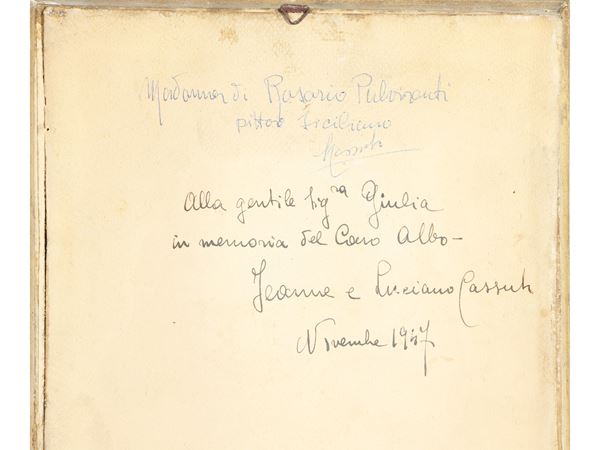 Madonna di Rosario Pulvirenti
pittore Siciliano
Alla gentile Sig.ra Giulia
in memoria del Caro Aldo -
Jeanne e Luciano Cassuto
Novembre 1947